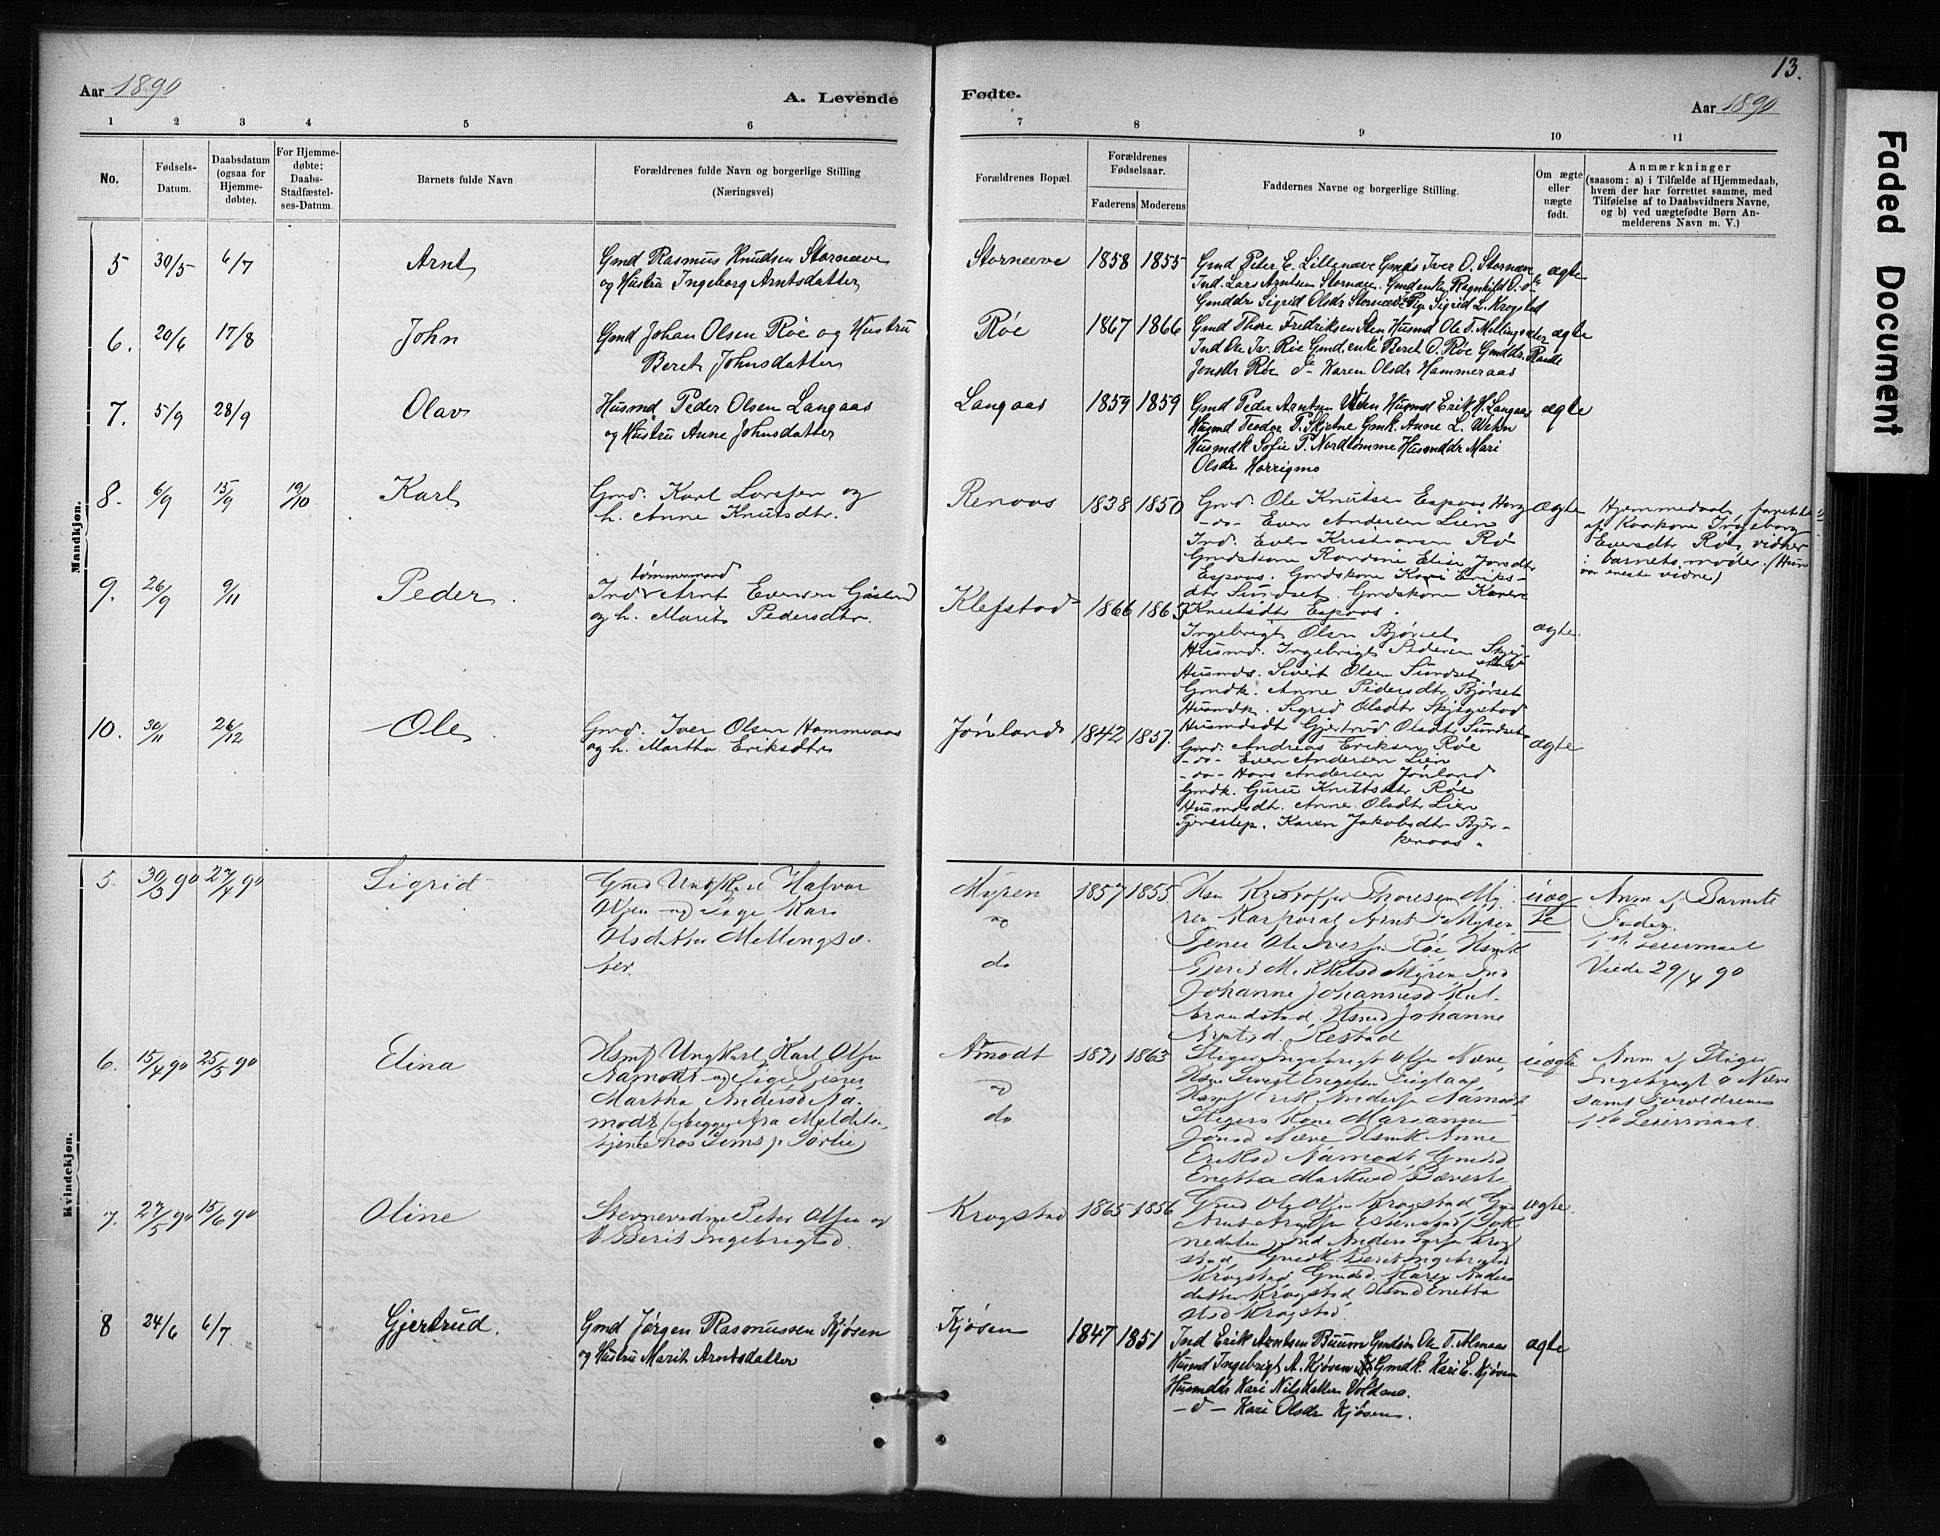 13.
Aar 1890
A. Levende Fødte.
Aar 1890
1 2 3 4 5 6 7 8 9 10 11
No.
Fødsels-
Datum.
Daabsdatum
(ogsaa for
Hjemme-
døbte).
For Hjemme-
døbte:
Daabs-
Stadfæstel-
ses-Datum.
Barnets fulde Navn
Forældrenes fulde Navn og borgerlige Stilling
(Næringsvei)
Forældrenes Bopæl.
Forældrenes
Fødselsaar.
Faderens Moderens
Faddernes Navne og borgerlige Stilling.
Om ægte
eller
uægte
født.
Anmærkninger
(saasom: a) i Tilfælde af Hjemmedaab,
hvem der har forrettet samme, med
Tilføielse af to Daabsvidners Navne,
og b) ved uægtefødte Børn An-
melderens Navn m. V.)
Mandkjøn.
5 30/5 6/7 Arnt
Gmd Rasmus Knudsen Stornæve
og Hustru Ingeborg Arntsdatter
Stornæve 1858 1855
Gmd Peter E. Lillenæve Gmds Iver O. Stornæve
Ind. Lars Arntsen Stornæve. Gmdenke Ragnhild O. do
Gmddr Sigrid Olsdr Stornæve Pige Sigrid L. Krogstad
ægte
6. 20/6 17/8 John
Gmd Johan Olsen Røe og Hustru
Beret Johnsdatter
Røe 1867 1866
Gmd Thore Fredriksen Sten Husmd Ole T. Mellingsæter
Ind Ole Iv. Røe Gmd.enke Beret O. Røe Gmddr. Randi
Jonsdr Røe d- Karen Olsdr Hammeraas
ægte
7. 5/9 28/9 Olav
Husmd Peder Olsen Langaas
og Hustru Anne Johnsdatter
Langaas 1859 1859
Gmd Peder Arntsen Wehn Husmd Erik H. Langaas
Husmd Teodor P. Skjetne Gmk. Anne L. Wehn
Husmdk Sofie P. Nordtømme Husmddr Mari
Olsdr. Horrigmo
ægte
8. 6/9 15/9 19/10 Karl
Gmd. Karl Larssen og
h. Anne Knutsdtr.
Renaas 1838 1850
Gmd. Ole Knutsen Espaas Haug
-do- Even Andersen Lien
Ind. Even Kristiansen Rø
Gmdskone Randine Elise Jonsdtr
Espaas. Gmdskone Kari Eriks-
dtr Sundset. Gmdskone Karen
Knutsdtr Espaas.
ægte
Hjemmedaab, forrettet
af Kaakone Ingeborg
Eversdtr Røe, vidner
barnets moder. (Hun
va eneste vidne)
9. 26/9 9/11 Peder
tømmermand
Ind. Arnt Evensen Gåsland
og h. Marit Pedersdtr.
Klefstad 1866 1865
Ingebrigt Olsen Bjørset
Husmd. Ingebrigt Pedersen Skjeg-
stad
Husmds. Sivert Olsen Sundset
Gmdk. Anne Pedersdtr Bjørset
Husmdk. Sigrid Olsdtr Skjegstad
Husmdsdt Gjertrud Olsdtr Sundset
ægte.
10. 30/11 26/12 Ole
Gmd. Iver Olsen Hammeraas
og h. Martha Eriksdtr
Jønland 1842 1857.
Gmd. Andreas Eriksen Røe
-do- Even Andersen Lien
-do- Hans Andersen Jønland
Gmdk. Guru Knutsdtr Røe
Husmdsdtr. Anne Olsdtr Lien
Tjenestep. Karen Jakobsdtr Bjer-
kenaas.
ægte
Kvindekjøn.
5. 30/3 90 27/4 90 Sigrid
Gmds Ungkarl Halvor
Olsen og Pige Kari
Olsdatter Mellingsæ-
ter.
Myren 1857 1855
og
do
Hsm Kristoffer Thoresen My-
ren Karporal Arnt T Myren
Tjener Ole Iversen Røe Hsmk
Gjerit Mikkelsd Myren Ind
Johanne Johannesd Kul-
brandstad, Hsmd Johanne
Arntsd. Restad
uæg
te
Anm af Barnets
Fader.
1ste Leiermaal
Viede 29/4 90
6. 15/4 90 25/5 90 Elina
Hsmds Ungkarl Karl Olsen
Aamodt og Pige Tjener
Martha Andersd Aa-
modt (begge fra Meldal
tjente hos
Amodt 1871 1863
og
do
Stiger Ingebrigt Olsen Næve,
Hsm Sivert Engelsen
Hsmds Erik Andersen Aamodt
Stigers Kone Marianne
Jonsd Næve Hsmk Anne
Eriksd Aamodt, Gmdsd
Enetta
uægte
Anm af Stiger
Ingebrigt O Næve
samt Forældrene
1ste Leiermaal.
7. 27/5 90 15/6 90 Oline
Peter Olsen og
Berit Ingebrigtsd.
Krogstad 1865 1856
Gmd Ole Olsen Krogstad Gmd
Arnt Arntsen
Ind Anders Krog
stad, Gmdk Beret Ingebrigtsd
Krogstad Gmdsd Karen Anders
datter Krogstad Hsmd Enetta
Olsd Krogstad
ægte.
8 24/6 6/7 Gjertrud.
Gmd Jørgen Rasmussen Kjøsen
og Hustru Marit Arntsdatter
Kjøsen 1847 1851
Ind Erik Arntsen Buum Gmdsøn Ole T. Almaas
Husmd Ingebrigt A. Kjøsen Gmdk. Kari E. Kjøsen
Husmddr Kari Nilsdatter Voldane.
-d- Kari Olsdr Kjøsen.
ægte
Faded Document